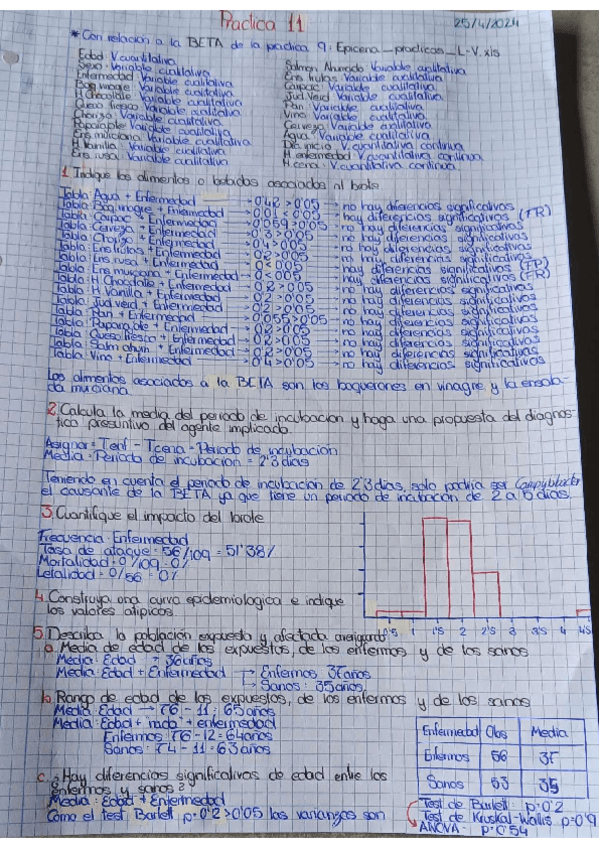 Practica 11
25/4/2024
* Con relación a la BETA de la practica 9: Epicena_practicas_L-V.xls
Edad: V. cuantitativa
Sexo: Variable cualitativa
Enfermedad Variable cualitativa
Boq vinagre Variable cualitativa
H Chocolate Variable cualitativa
Queso fresco Variable cualitativa
Chorizo: Variable cualitativa
Ens murciana: Variable cualitativa
H Vainilla: Variable cualitativa
Ens rusa: Variable cualitativa
Salmon Ahumado: Variable cualitativa
Ens frutas: Variable cualitativa
Variable cualitativa
Jud Verd: Variable cualitativa
Pan: Variable cualitativa
Vino: Variable cualitativa
Cerveza: Variable cualitativa
Agua: Variable cualitativa
Dia inicio: V. cuantitativa continua
H enfermedad: V. cuantitativa continua
H cena: V. cuantitativa continua
1. Indique los alimentos o bebidas asociados al brote
Tabla: Agua + Enfermedad → 0'42 > 0'05 → no hay diferencias significativas
Tabla: Boq vinagre + Enfermedad → 0'01 < 0'05 → hay diferencias significativas (FR)
Tabla: + Enfermedad → 0'059 > 0'05 → no hay diferencias significativas
Tabla: Cerveza + Enfermedad → 0'3 > 0'05 → no hay diferencias significativas
Tabla: Chorizo + Enfermedad → 0'4 > 0'05 → no hay diferencias significativas
Tabla: Ens frutas + Enfermedad → 0'2 > 0'05 → no hay diferencias significativas
Tabla: Ens rusa + Enfermedad → 0 < 0'05 → hay diferencias significativas
Tabla: Ens murciana + Enfermedad → 0 < 0'05 → hay diferencias significativas (FR)
Tabla: H Chocolate + Enfermedad → 0'2 > 0'05 → no hay diferencias significativas
Tabla: H Vainilla + Enfermedad → 0'2 > 0'05 → no hay diferencias significativas
Tabla: Jud verd + Enfermedad → 0'2 > 0'05 → no hay diferencias significativas
Tabla: Pan + Enfermedad → 0'055 > 0'05 → no hay diferencias significativas
Tabla: + Enfermedad → 0'2 > 0'05 → no hay diferencias significativas
Tabla: Queso fresco + Enfermedad → 0'2 > 0'05 → no hay diferencias significativas
Tabla: Salm ahum + Enfermedad → 0'2 > 0'05 → no hay diferencias significativas
Tabla: Vino + Enfermedad → 0'4 > 0'05 → no hay diferencias significativas
Los alimentos asociados a la BETA son los boquerones en vinagre y la ensala-
da murciana.
2. Calcula la media del periodo de incubación y haga una propuesta del diagnos-
tico presuntivo del agente implicado.
Asignar = Tenf - Tcena = Periodo de incubación
Media = Periodo de incubación = 2'3 dias
Teniendo en cuenta el periodo de incubacion de 2'3 dias, solo podria ser Campylobacter
el causante de la BETA ya que tiene un periodo de incubación de 2 a 5 dias.
3. Cuantifique el impacto del brote
Frecuencia: Enfermedad
Tasa de ataque = 56/109 = 51'38%
Mortalidad = 0/109 = 0%
Letalidad = 0/56 = 0%
4. Construya una curva epidemiologica e indique
los valores atipicos
0'5 1 1'5 2 2'5 3 3'5 4 4'5
5. Describa la población expuesta y afectada averiguando:
a. Media de edad de los expuestos, de los enfermos y de los sanos
Media: Edad = 36 años
Media: Edad + Enfermedad → Enfermos: 37 años
→ Sanos: 35 años
b. Rango de edad de los expuestos, de los enfermos y de los sanos
Media: Edad → 76 - 11 = 65 años
Media: Edad + "nada" + enfermedad
Enfermos: 76-12 = 64 años
Sanos: 74 - 11 = 63 años
Enfermedad Obs Media
Enfermos 56 37
Sanos 53 35
c. ¿Hay diferencias significativas de edad entre los
enfermos y sanos?
Media: Edad + Enfermedad
Como el test Barlett p=0'2 > 0'05 las varianzas son
Test de Barlett: p=0'2
Test de Kruskal-Wallis p=0'9
ANOVA: p=0'54